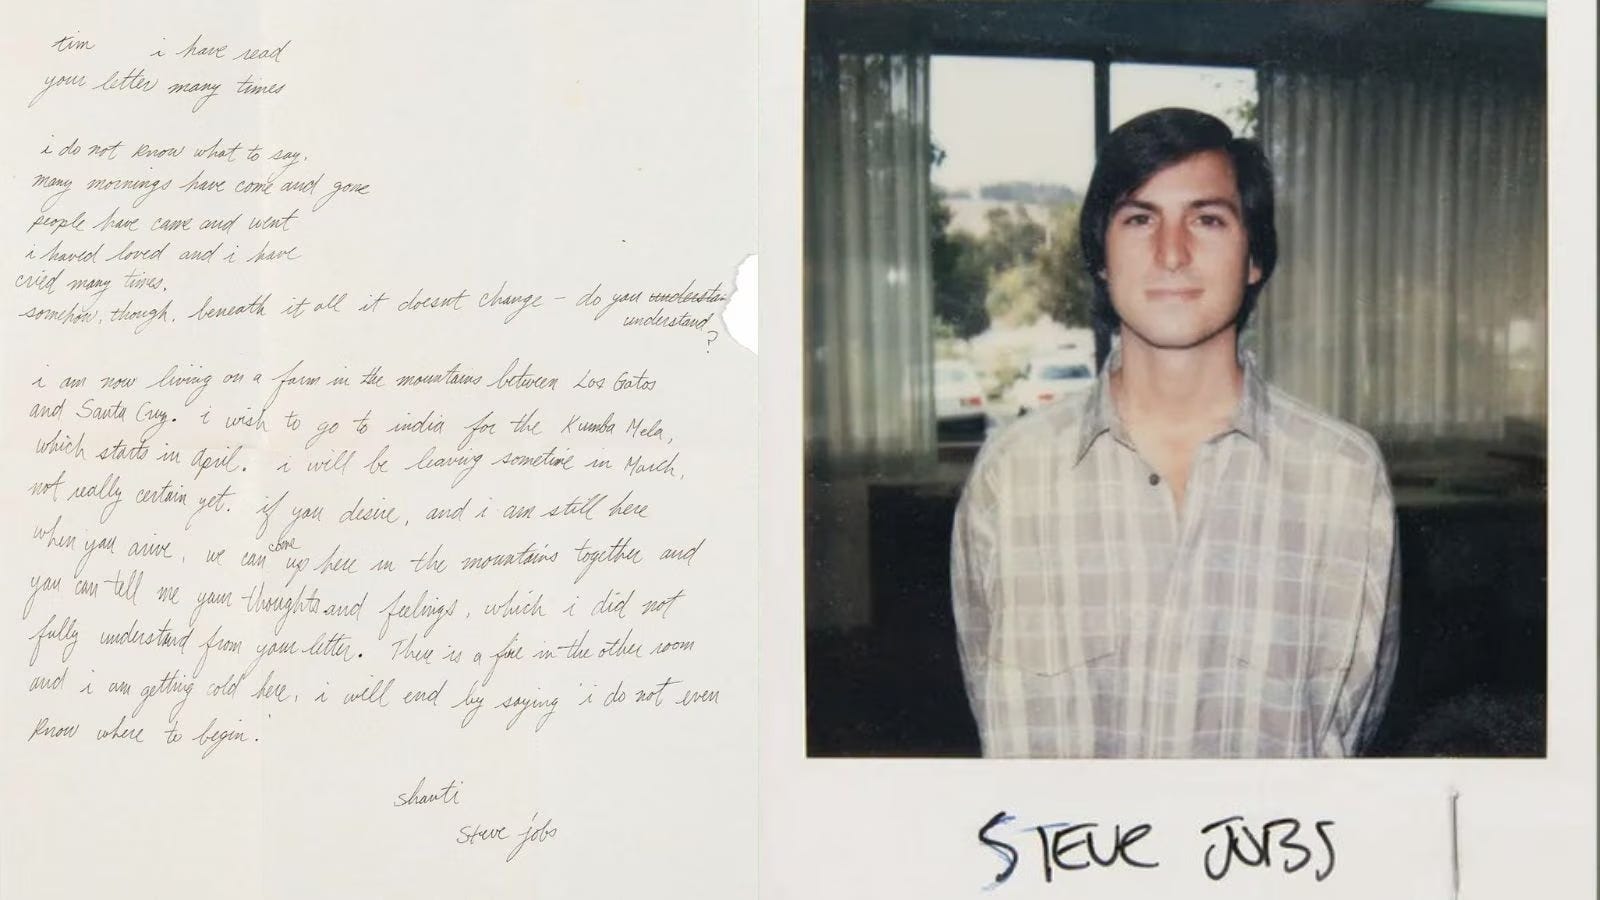 tim i have read
your letter many times
i do not know what to say.
many mornings have come and gone
people have came and went
i haved loved and i have
cried many times.
somehow, though, beneath it all it doesnt change - do you understan
understand
?
i am now living on a farm in the mountains between Los Gatos
and Santa Cruz. i wish to go to india for the Kumba Mela,
which starts in April. i will be leaving sometime in March,
not really certain yet. if you desire, and i am still here
when you arive, we can come up here in the mountains together and
you can tell me your thoughts and feelings, which i did not
fully understand from your letter. There is a fire in the other room
and i am getting cold here. i will end by saying 'i do not even
know where to begin.'
shanti
steve jobs
STEVE JOBS